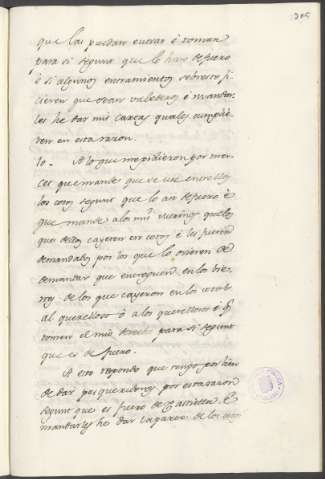 que las puedan entrar é tomar
para si segunt que lo han de fuero
é si algunos entramientos sobresto fi
cieren que sean valederos é mandar
les he dar mis cartas quales cumplie
ren en esta razon.
10. A lo que me pidieron por mer
ced que mande que se use entre ellos
los cotos segunt que lo an de fuero é
que mande a los mis merinos que los
que dellos cayeren en cotos é les fueren
demandados por los que lo ovieren de
demandar que entreguen en los bie
nes de los que cayeron en los cotos
al querelloso ó a los querellosos é q
tomen el mio derecho para si segunt
que es de fuero.
A esto respondo que tengo por bien
de dar pesqueridores por esta razon
segunt que es fuero de Castiella é
mandarles he dar la parte de los cotos